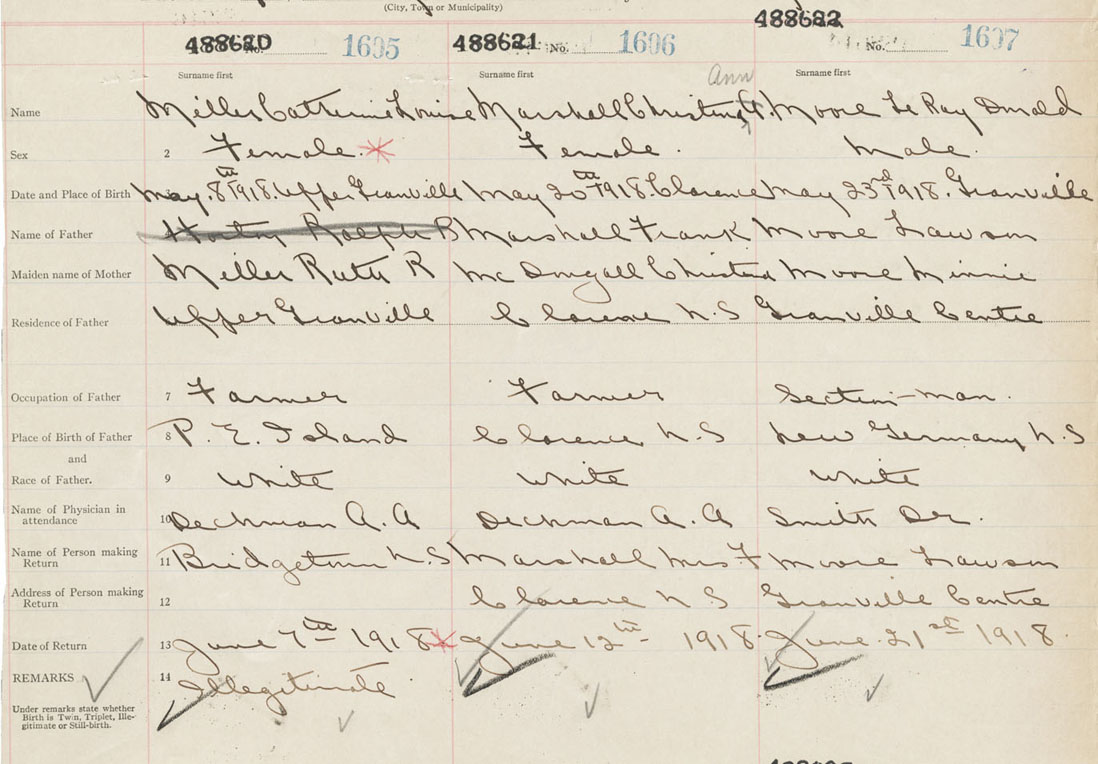 (City, Town or Municipality)
488620 No. 1605 488621 No. 1606 488622 No. 1607
Surname first Surname first Surname first
Ann
Name Miller Catherine Louise Marshall Christina A. Moore Le Ray Donald
Sex 2 Female. Female. Male.
Date and Place of Birth May. 8th 1918. Upper Granville May 20th 1918. Clarence May 23rd 1918. Granville
Name of Father Ralph B Marshall Frank Moore Lawson
Maiden name of Mother Miller Ruth R Mc Dougall Christena Moore Minnie
Residence of Father Upper Granville Clarence N.S Granville Centre
Occupation of Father 7 Farmer Farmer Section-man.
Place of Birth of Father 8 P. E. Island Clarence N.S New Germany N.S
and
Race of Father. 9 White White White
Name of Physician in
attendance 10 Deckman A. A Deckman A. A Smith Dr.
Name of Person making
Return 11 Bridgetown N.S Marshall Mrs F Moore Lawson
Address of Person making
Return 12 Clarence N S Granville Centre
Date of Return 13 June 7th 1918 June 12th 1918. June 21st 1918.
REMARKS 14 Illegitimate
Under remarks state whether
Birth is Twin, Triplet, Ille-
gitimate or Still-birth.